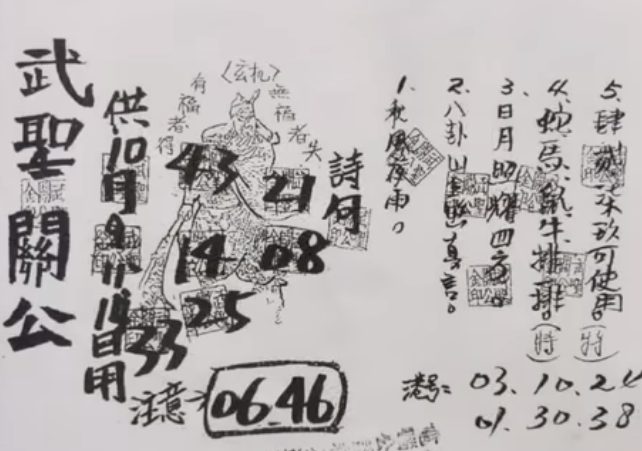 武聖關公
供10月9.11.14日用
〈玄机〉
有福者得
無福者失
43
21
14
08
25
33
注意→ 06.46
詩句
1、秋風夜雨。
2、八卦山
3、日月照耀四方。
4、蛇馬鼠牛排排。(特)
5、肆 柒玖可使用。(特)
港号: 03.10.24
01.30.38